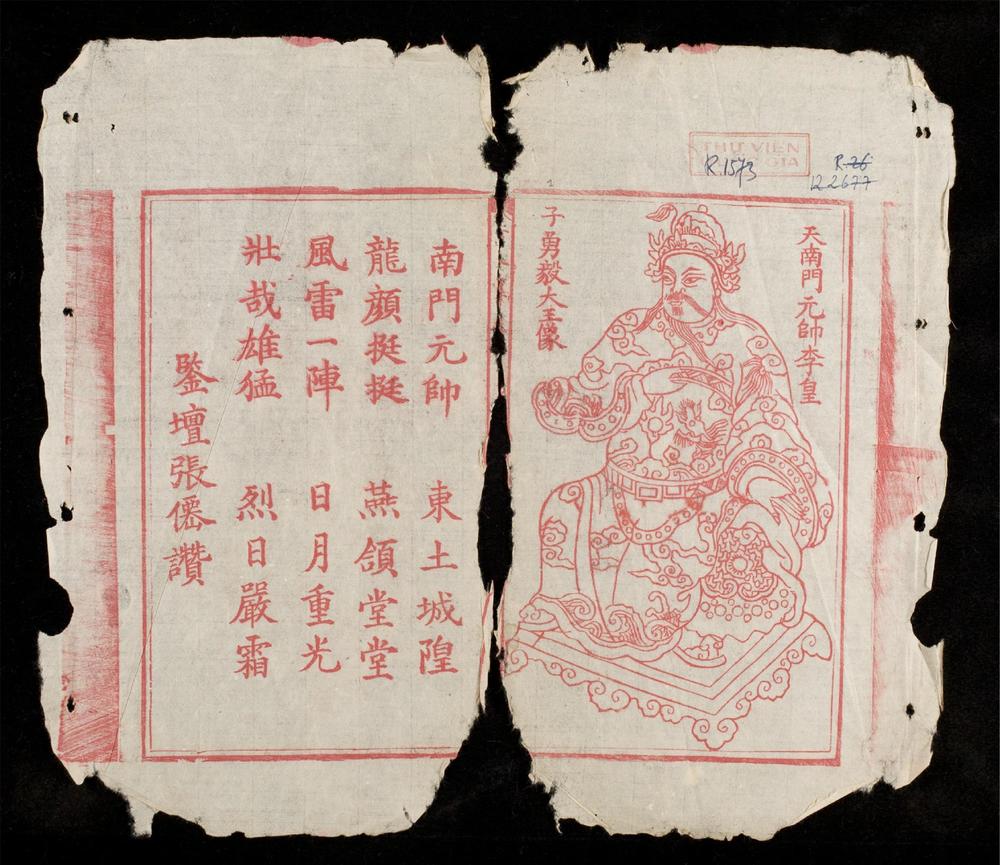 THƯ VIỆN
GIA
R.1573
R.26
12 2677
天南門元帥李皇
子勇毅大王像
南門元帥 東土城隍
龍顔挺挺 燕頷堂堂
風雷一陣 日月重光
壯哉雄猛 烈日嚴霜
鑒壇張僊讚